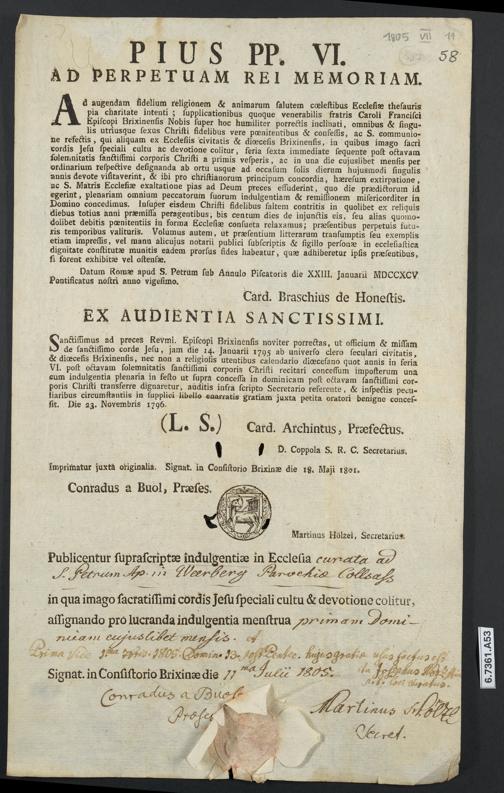 1805 VII 11
58
PIUS PP. VI.
AD PERPETUAM REI MEMORIAM.
Ad augendam fidelium religionem & animarum salutem cœlestibus Ecclesiæ thesauris
pia charitate intenti; supplicationibus quoque venerabilis fratris Caroli Francisci
Episcopi Brixinensis Nobis super hoc humiliter porrectis inclinati, omnibus & singu-
lis utriusque sexus Christi fidelibus vere pœnitentibus & confessis, ac S. communio-
ne refectis, qui aliquam ex Ecclesiis civitatis & diœcesis Brixinensis, in quibus imago sacri
cordis Jesu speciali cultu ac devotione colitur, feria sexta immediate sequente post octavam
solemnitatis sanctissimi corporis Christi a primis vesperis, ac in una die cujuslibet mensis per
ordinarium respective designanda ab ortu usque ad occasum solis dierum hujusmodi singulis
annis devote visitaverint, & ibi pro christianorum principum concordia, hæresum extirpatione,
ac S. Matris Ecclesiæ exaltatione pias ad Deum preces effuderint, quo die prædictorum id
egerint, plenariam omnium peccatorum suorum indulgentiam & remissionem misericorditer in
Domino concedimus. Insuper eisdem Christi fidelibus saltem contritis in quolibet ex reliquis
diebus totius anni præmissa peragentibus, bis centum dies de injunctis eis, seu alias quomo-
dolibet debitis pœnitentiis in forma Ecclesiæ consueta relaxamus; præsentibus perpetuis futu-
ris temporibus valituris. Volumus autem, ut præsentium litterarum transumptis seu exemplis
etiam impressis, vel manu alicujus notarii publici subscriptis & sigillo personæ in ecclesiastica
dignitate constitutæ munitis eadem prorsus fides habeatur, quæ adhiberetur ipsis præsentibus,
si forent exhibitæ vel ostensæ.
Datum Romæ apud S. Petrum sub Annulo Piscatoris die XXIII. Januarii MDCCXCV
Pontificatus nostri anno vigesimo.
Card. Braschius de Honestis.
EX AUDIENTIA SANCTISSIMI.
Sanctissimus ad preces Revmi. Episcopi Brixinensis noviter porrectas, ut officium & missam
de sanctissimo corde Jesu, jam die 14. Januarii 1795 ab universo clero seculari civitatis,
& diœcesis Brixinensis, nec non a religiosis utentibus calendario diœcesano quot annis in feria
VI. post octavam solemnitatis sanctissimi corporis Christi recitari concessum imposterum una
cum indulgentia plenaria in festo ut supra concessa in dominicam post octavam sanctissimi cor-
poris Christi transferre dignaretur, auditis infra scripto Secretario referente, & inspectis pecu-
liaribus circumstantiis in supplici libello enarratis gratiam juxta petita oratori benigne conces-
sit. Die 23. Novembris 1796.
(L. S.) Card. Archintus, Præfectus.
D. Coppola S. R. C. Secretarius.
Imprimatur juxta originalia. Signat. in Consistorio Brixinæ die 18. Maji 1801.
Conradus a Buol, Præses.
Martinus Hölzel, Secretarius.
Publicentur suprascriptæ indulgentiæ in Ecclesia curata ad
S. Petrum Ap. in Waerberg Parochiæ Collsass
in qua imago sacratissimi cordis Jesu speciali cultu & devotione colitur,
assignando pro lucranda indulgentia menstrua primam Domi-
nicam cujuslibet mensis.
Signat. in Consistorio Brixinæ die 11ma Julii 1805.
Conradus a Buol
Præses
Martinus Hölzel
Secret.
6.7361.A53